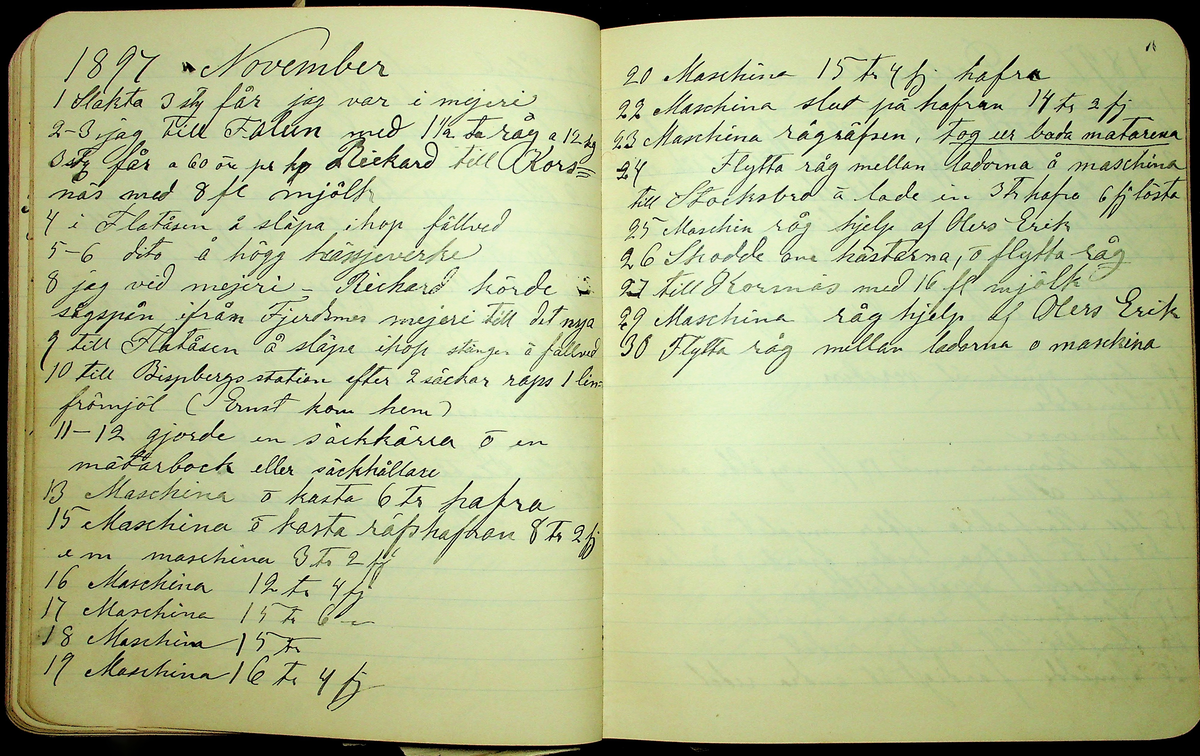 1897 November
1 Slakta 3 sty får jag var i mejeri
2-3 jag till Falun med 1½ tr råg a 12 kg
3 sty får a 60 öre pr kg Rickard till Kors=
näs med 8 fl mjölk
4 i Flatåsen å släpa ihop fällved
5-6 dito å högg hässjevirke
8 jag ved mejeri - Rickard körde
sågspån ifrån Fjerdmes mejeri till det nya
9 till Flatåsen å släpa ihop stänger å fällved
10 till Bispbergs station efter 2 säckar raps 1 lin=
frömjöl (Ernst kom hem)
11-12 gjorde en säckkärra o en
mätarbock eller säckhållare
13 Maschina o kasta 6 tr hafra
15 Maschina o kasta räfshafran 8 tr 2 fj
e m maschina 3 tr 2 fj
16 Maschina 12 tr 4 fj
17 Maschina 15 tr 6 —
18 Maschina 15 tr
19 Maschina 16 tr 4 fj
20 Maschina 15 tr 4 fj hafra
22 Maschina slut på hafran 14 tr 2 fj
23 Maschina rågräfsen, tog ur båda matarena
24 Flytta råg mellan ladorna å maschina
till Stocksbro å lade in 3 tr hafra 6 fj lösta
25 Maschin råg hjelp af Hers Erik
26 Skodde hästarna, o flytta råg
27 till Korsnäs med 16 fl mjölk
29 Maschina råg hjelp af Hers Erik
30 Flytta råg mellan ladorna o maschina